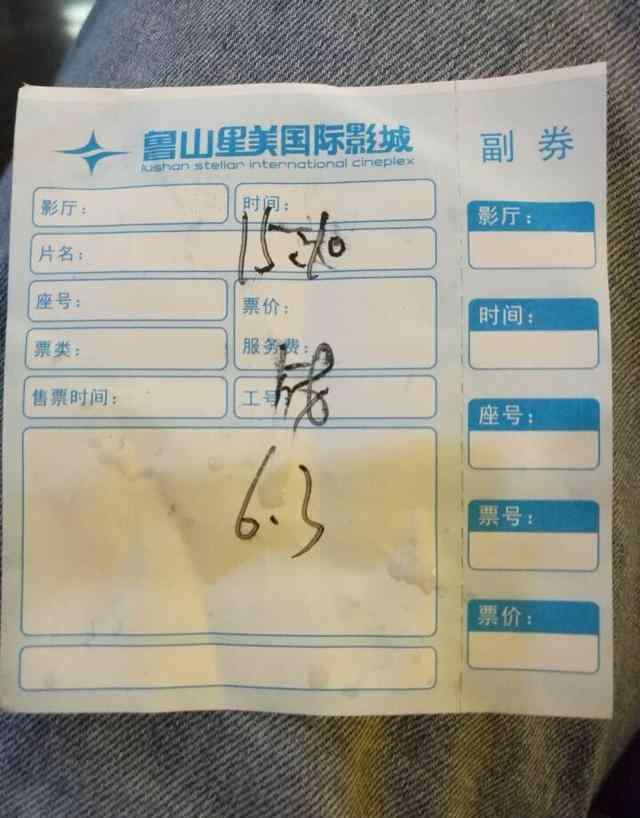 鲁山星美国际影城
lushan stellar international cineplex
副 券
影厅：
时间：
片名：
座号：
票价：
票类：
服务费：
售票时间：
工号：
6.3
影厅：
时间：
座号：
票号：
票价：